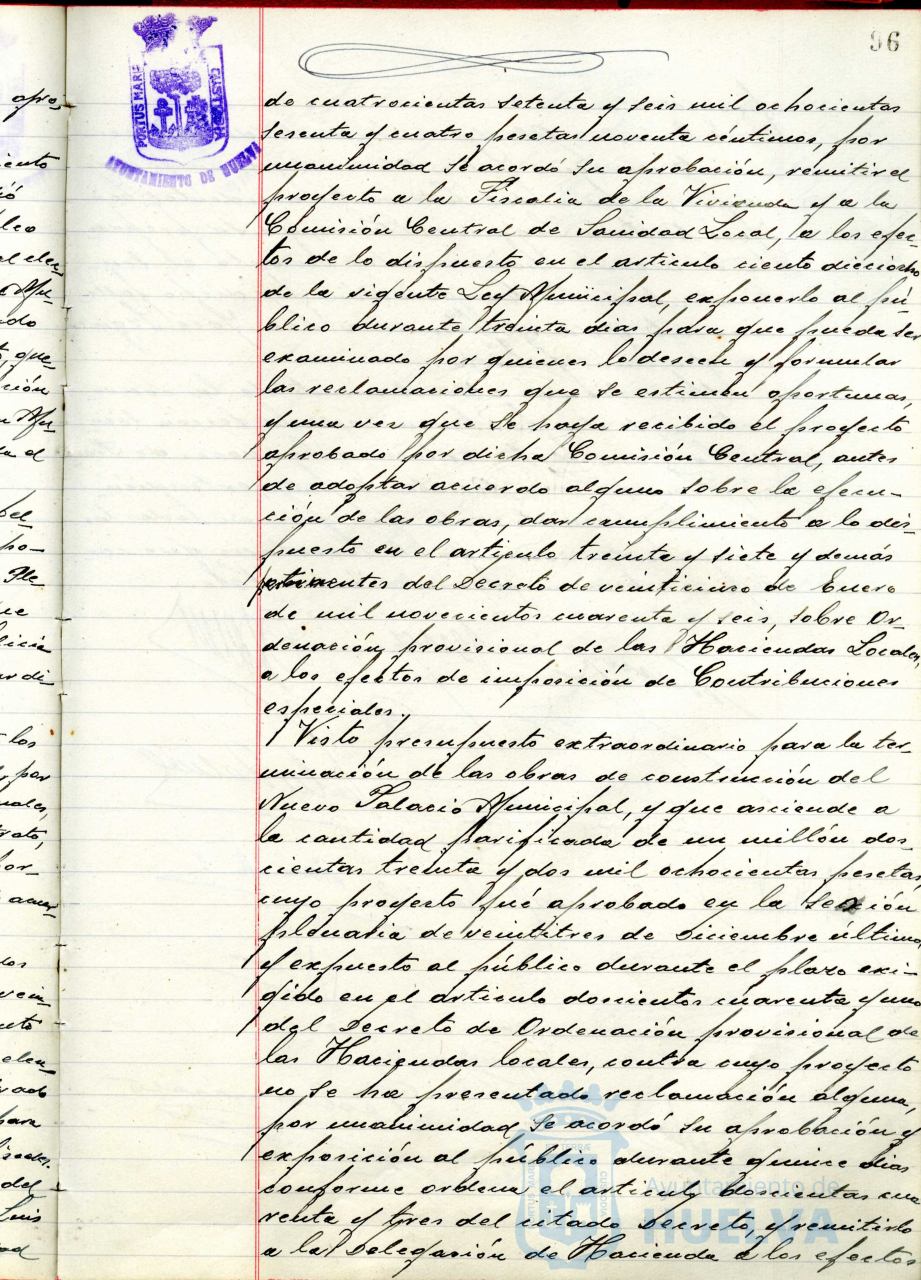 96
PORTUS MARIS
AYUNTAMIENTO DE HUELVA
de cuatrocientas setenta y seis mil ochocientas
sesenta y cuatro pesetas noventa céntimos, por
unanimidad se acordó su aprobación, remitir el
proyecto a la Fiscalia de la Vivienda y a la
Comisión Central de Sanidad Local, a los efec-
tos de lo dispuesto en el articulo ciento dieciocho
de la vigente Ley Municipal, exponerlo al pú-
blico durante treinta dias para que pueda ser
examinado por quienes lo deseen y formular
las reclamaciones que se estimen oportunas,
y una vez que se haya recibido el proyecto
aprobado por dicha Comisión Central, antes
de adoptar acuerdo alguno sobre la ejecu-
ción de las obras, dar cumplimiento a lo dis-
puesto en el articulo treinta y siete y demás
pertinentes del Decreto de veinticinco de Enero
de mil novecientos cuarenta y seis, sobre Or-
denación provisional de las Haciendas Locales,
a los efectos de imposición de Contribuciones
especiales.
Visto presupuesto extraordinario para la ter-
minación de las obras de construcción del
Nuevo Palacio Municipal, y que asciende a
la cantidad parificada de un millón dos-
cientas treinta y dos mil ochocientas pesetas
cuyo proyecto fué aprobado en la sesión
plenaria de veintitres de Diciembre último,
y expuesto al público durante el plazo exi-
gido en el articulo doscientos cuarenta y uno
del Decreto de Ordenación provisional de
las Haciendas locales, contra cuyo proyecto
no se ha presentado reclamación alguna,
por unanimidad se acordó su aprobación y
exposición al público durante quince dias
conforme ordena el articulo doscientos cua
renta y tres del citado Decreto, y remitirlo
a la Delegación de Hacienda a los efectos
Ayuntamiento de
HUELVA